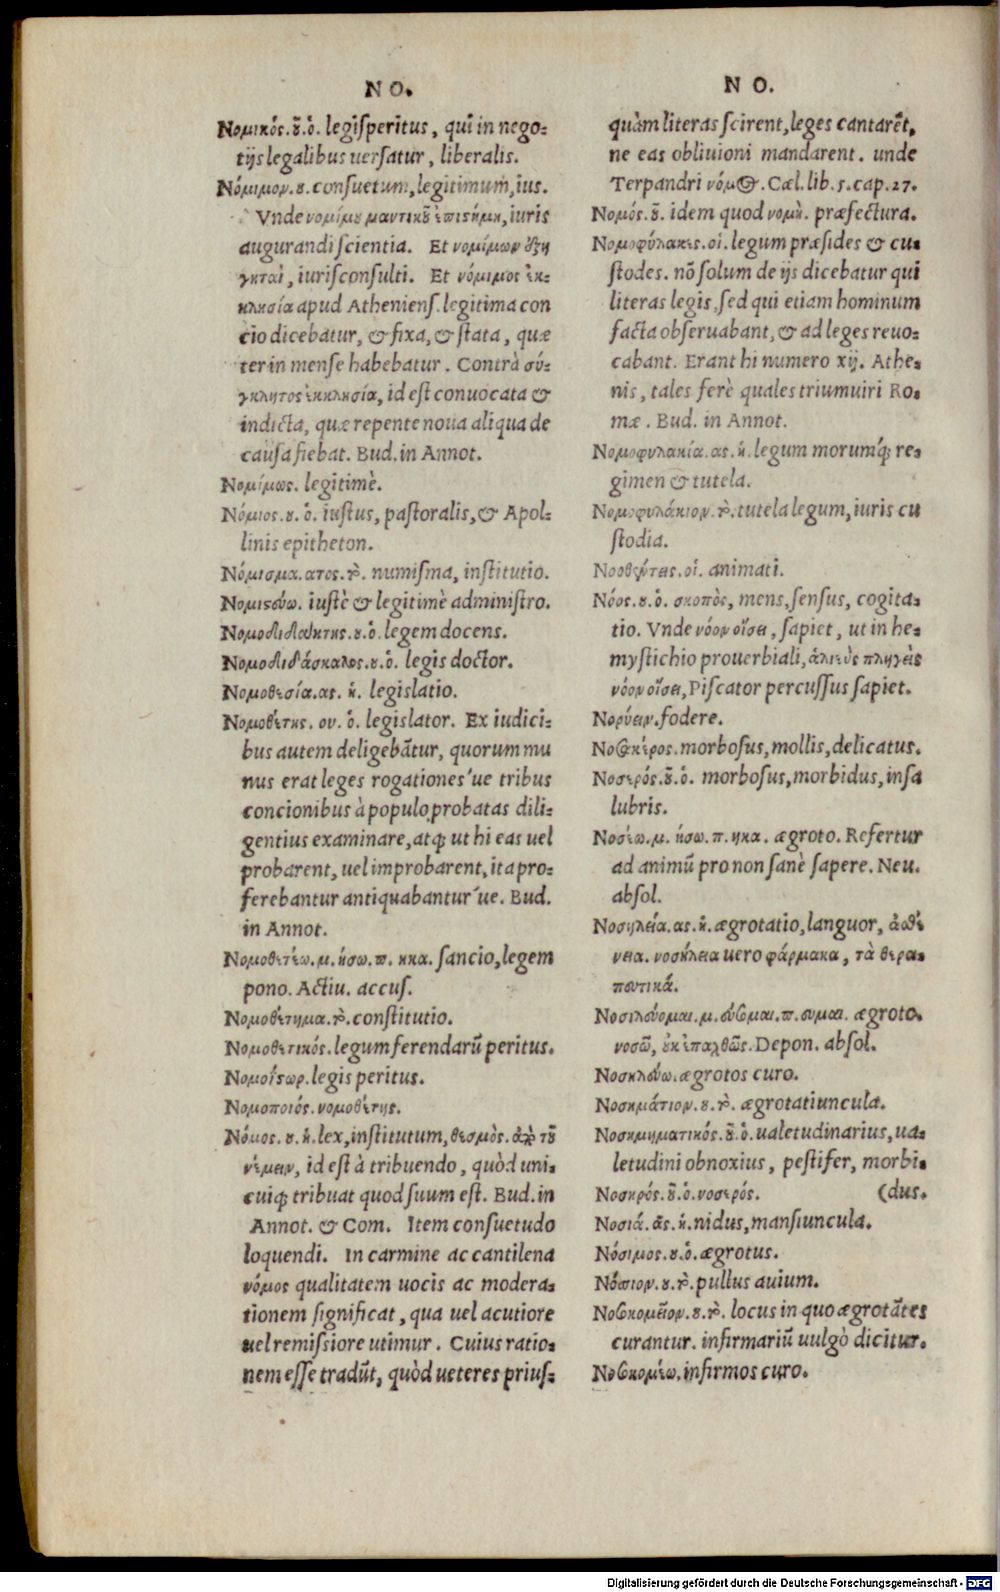 NO.
Νομικός.ȣ̃.ὁ. legiſperitus, qui in nego⸗
tijs legalibus uerſatur, liberalis.
Νόμιμον.ȣ. conſuetum, legitimum, ius.
Vnde νομίμȣ μαντικȣ͂ ἐπιϛήμη, iuris
augurandi ſcientia. Et νομίμων ἐξη
γηταὶ, iuriſconſulti. Et νόμιμος ἐκ⸗
κλησία apud Athenienſ. legitima con
cio dicebatur, & fixa, & ſtata, quæ
ter in menſe habebatur. Contrà σύ⸗
γκλητος ἐκκλησία, id eſt conuocata &
indicta, quæ repente noua aliqua de
cauſa fiebat. Bud. in Annot.
Νομίμως. legitimè.
Νόμιος.ȣ.ὁ. iuſtus, paſtoralis, & Apol⸗
linis epitheton.
Νόμισμα.ατος.τὸ. numiſma, inſtitutio.
Νομιϛεύω. iuſtè & legitimè adminiſtro.
Νομοδιδάκτης.ȣ.ὁ. legem docens.
Νομοδιδάσκαλος.ȣ.ὁ. legis doctor.
Νομοθεσία.ας.ἡ. legislatio.
Νομοθέτης.ου.ὁ. legislator. Ex iudici⸗
bus autem deligebãtur, quorum mu
nus erat leges rogationes'ue tribus
concionibus à populo probatas dili⸗
gentius examinare, atq; ut hi eas uel
probarent, uel improbarent, ita pro⸗
ferebantur antiquabantur'ue. Bud.
in Annot.
Νομοθετέω.μ.ήσω.π.ηκα. ſancio, legem
pono. Actiu. accuſ.
Νομοθέτημα.τὸ. conſtitutio.
Νομοθετικός. legum ferendarũ peritus.
Νομοΐϛωρ. legis peritus.
Νομοποιός. νομοθέτης.
Νόμος.ȣ.ὁ. lex, inſtitutum, θεσμὸς. ἀπὸ τȣ͂
νέμειν, id eſt à tribuendo, quòd uni⸗
cuiq; tribuat quod ſuum eſt. Bud. in
Annot. & Com. Item conſuetudo
loquendi. In carmine ac cantilena
νόμος qualitatem uocis ac modera⸗
tionem ſignificat, qua uel acutiore
uel remiſsiore utimur. Cuius ratio⸗
nem eſſe tradũt, quòd ueteres priuſ⸗
NO.
quàm literas ſcirent, leges cantarẽt,
ne eas obliuioni mandarent. unde
Terpandri νόμος. Cæl. lib. 5. cap. 27.
Νομός.ȣ̃. idem quod νομὴ. præfectura.
Νομοφύλακες.οἱ. legum præſides & cu⸗
ſtodes. nõ ſolum de ijs dicebatur qui
literas legis, ſed qui etiam hominum
facta obſeruabant, & ad leges reuo⸗
cabant. Erant hi numero xij. Athe⸗
nis, tales ferè quales triumuiri Ro⸗
mæ. Bud. in Annot.
Νομοφυλακία.ας.ἡ. legum morumq́; re⸗
gimen & tutela.
Νομοφυλάκιον.τὸ. tutela legum, iuris cu
ſtodia.
Νοοθέντεις.οἱ. animati.
Νόος.ȣ.ὁ. σκοπὸς, mens, ſenſus, cogita⸗
tio. Vnde νόον οἴσει, ſapiet, ut in he⸗
myſtichio prouerbiali, ἁλιεὺς πληγεὶς
νόον οἴσει, Piſcator percuſſus ſapiet.
Νορύειν. fodere.
Νοσακερος. morboſus, mollis, delicatus.
Νοσερός.ȣ̃.ὁ. morboſus, morbidus, inſa
lubris.
Νοσέω.μ.ήσω.π.ηκα. ægroto. Refertur
ad animũ pro non ſanè ſapere. Neu.
abſol.
Νοσηλεία.ας.ἡ. ægrotatio, languor, ἀσθέ
νεια. νοσήλεια uero φάρμακα, τὰ θερα⸗
πευτικά.
Νοσιλεύομαι.μ.εύσομαι.π.ευμαι. ægroto.
νοσῶ, ȣ̓κ ἐπαχθῶς. Depon. abſol.
Νοσηλεύω. ægrotos curo.
Νοσημάτιον.ȣ.τὸ. ægrotatiuncula.
Νοσημηματικός.ȣ̃.ὁ. ualetudinarius, ua⸗
letudini obnoxius, peſtifer, morbi⸗
Νοσηρός.ȣ̃.ὁ. νοσερός. (dus.
Νοσιά.ᾶς.ἡ. nidus, manſiuncula.
Νόσιμος.ȣ.ὁ. ægrotus.
Νόσσιον.ȣ.τὸ. pullus auium.
Νοσοκομεῖον.ȣ.τὸ. locus in quo ægrotãtes
curantur. infirmariũ uulgò dicitur.
Νοσοκομέω. infirmos curo.
Digitalisierung gefördert durch die Deutsche Forschungsgemeinschaft - DFG